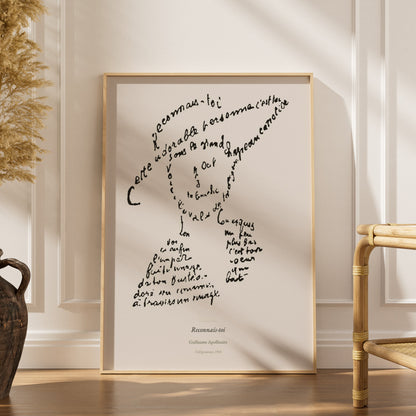 Reconnais-toi
Cette adorable personne c'est toi
Sous le grand chapeau canotier
Œil
Nez
la bouche
Voici l'ovale de ta figure
Ton cou exquis
Voici enfin
l'imparfaite image
de ton buste adoré vu comme
à travers un nuage
Un peu
plus bas
c'est ton
cœur
qui
bat
Reconnais-toi
Guillaume Apollinaire
Calligrammes